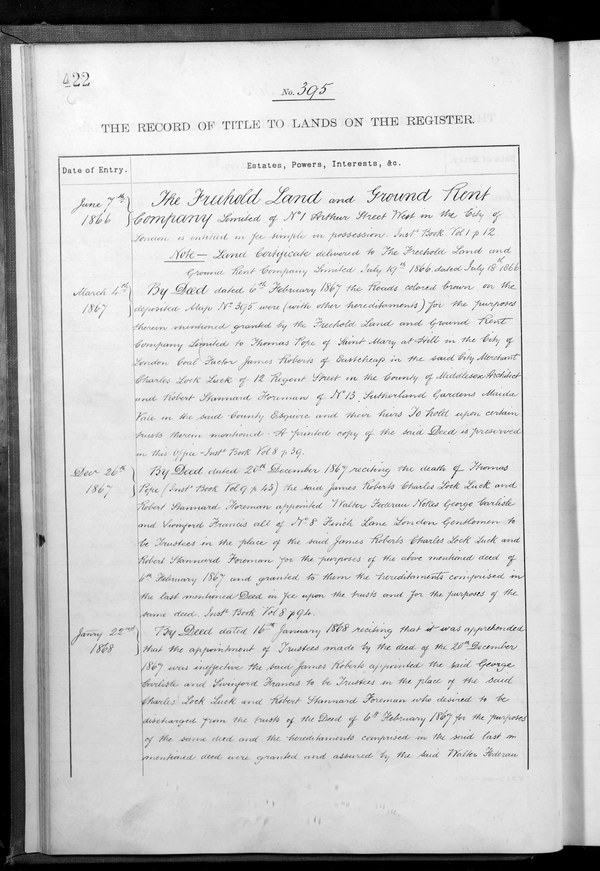 422
No. 395
THE RECORD OF TITLE TO LANDS ON THE REGISTER.
Date of Entry.
Estates, Powers, Interests, &c.
June 7th 1866
The Freehold Land and Ground Rent
Company Limited of No 1 Arthur Street West in the City of
London is entitled in fee simple in possession. Instt Book Vol 1 p 12
Note— Land Certificate delivered to The Freehold Land and
Ground Rent Company Limited July 19th 1866 dated July 18th 1866
March 4th 1867
By Deed dated 6th February 1867 the Roads colored brown on the
deposited Map No 395 were (with other hereditaments) for the purposes
therein mentioned granted by the Freehold Land and Ground Rent
Company Limited to Thomas Pope of Saint Mary at Hill in the City of
London Coal Factor James Roberts of Eastcheap in the said City Merchant
Charles Lock Luck of 12 Regent Street in the County of Middlesex Architect
and Robert Stannard Foreman of No 13 Sutherland Gardens Maida
Vale in the said County Esquire and their heirs To hold upon certain
trusts therein mentioned - A printed copy of the said Deed is preserved
in this Office Instt Book Vol 8 p 39.
Decr 26th 1867
By Deed dated 20th December 1867 reciting the death of Thomas
Pope (Instt Book Vol 9 p 45) the said James Roberts Charles Lock Luck and
Robert Stannard Foreman appointed Walter Federau Nokes George Carlisle
and Swinford Francis all of No 8 Finch Lane London Gentlemen to
be Trustees in the place of the said James Roberts Charles Lock Luck and
Robert Stannard Foreman for the purposes of the above mentioned deed of
6th February 1867 and granted to them the hereditaments comprised in
the last mentioned Deed in fee upon the trusts and for the purposes of the
same deed. Instt Book Vol 8 p 94.
Janry 22nd 1868
By Deed dated 16th January 1868 reciting that it was apprehended
that the appointment of Trustees made by the deed of the 20th December
1867 was ineffective the said James Roberts appointed the said George
Carlisle and Swinford Francis to be Trustees in the place of the said
Charles Lock Luck and Robert Stannard Foreman who desired to be
discharged from the trusts of the Deed of 6th February 1867 for the purposes
of the same deed and the hereditaments comprised in the said last
mentioned deed were granted and assured by the said Walter Federau